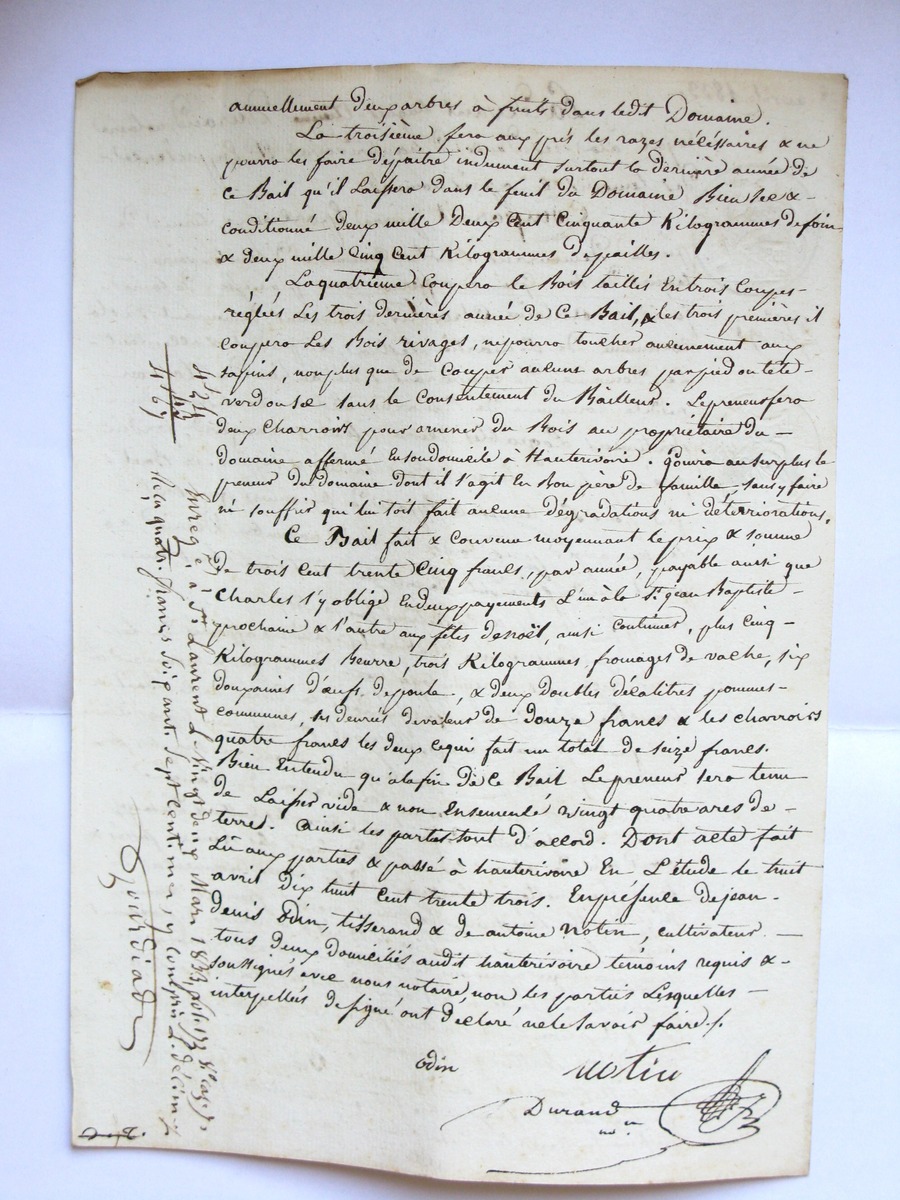 annuellement deux arbres à fruits dans ledit Domaine.
La troisième fera aux prés les razes nécéssaires & ne
pourra les faire dépaitre indument surtout la dernière année de
ce Bail qu'il Laissera dans le feuil du Domaine Bien sec &
conditionné deux mille Deux Cent Cinquante Kilogrammes de foin
& deux mille Cinq Cent Kilogrammes de pailles.
La quatrième Coupera le Bois taillis En trois Coupes
réglées Les trois dernières année de Ce Bail, & les trois premières il
coupera Les Bois rivages, ne pourra toucher aucunement aux
sapins, non plus que de Couper aucuns arbres par pied ou tête
verd ou sec sans le Consentement du Bailleur. Le preneur fera
deux Charrois pour amener du Bois au propriétaire du
domaine affermé En son domicile à Hauterivoire. Jouira au surplus le
preneur du Domaine dont il s'agit En Bon pere de famille, sans y faire
ni souffrir qu'il lui soit fait aucune dégradations ni déteriorations.
Ce Bail fait & Convenu moyennant le prix & somme
de trois Cent trente Cinq francs, par année, payable ainsi que
Charles s'y oblige En deux payements L'un à la St. jean Baptiste
prochaine & l'autre aux fêtes de noël, ainsi Continuer, plus Cinq
Kilogrammes Beurre, trois Kilogrammes, fromages de vache, six
douzaines d'œufs de poule, & deux doubles décalitres pommes
communes, les denrées de valeur de douze francs & les charrois
quatre francs les deux ce qui fait un total de seize francs.
Bien Entendu qu'à la fin de Ce Bail Le preneur sera tenu
de Laisser vide & non Ensemencé vingt quatre ares de
terres. ainsi les parties sont d'accord. Dont acte fait
Lu aux parties & passé à hauterivoire En L'étude le huit
avril dix huit Cent trente trois. En présence de jean
denis Odin, tisserand & de antoine Notin, cultivateur
tous deux domiciliés audit hauterivoire témoins requis &
soussignés avec nous notaire, non les parties Lesquelles
interpellées de signé ont déclaré ne le savoir faire.
Odin
notin
Durand
434
43
467
Enregé à St. Laurent L Vingt deux 1833, fol. 173
Reçu quatre francs soixante sept centimes, y compris L. décime